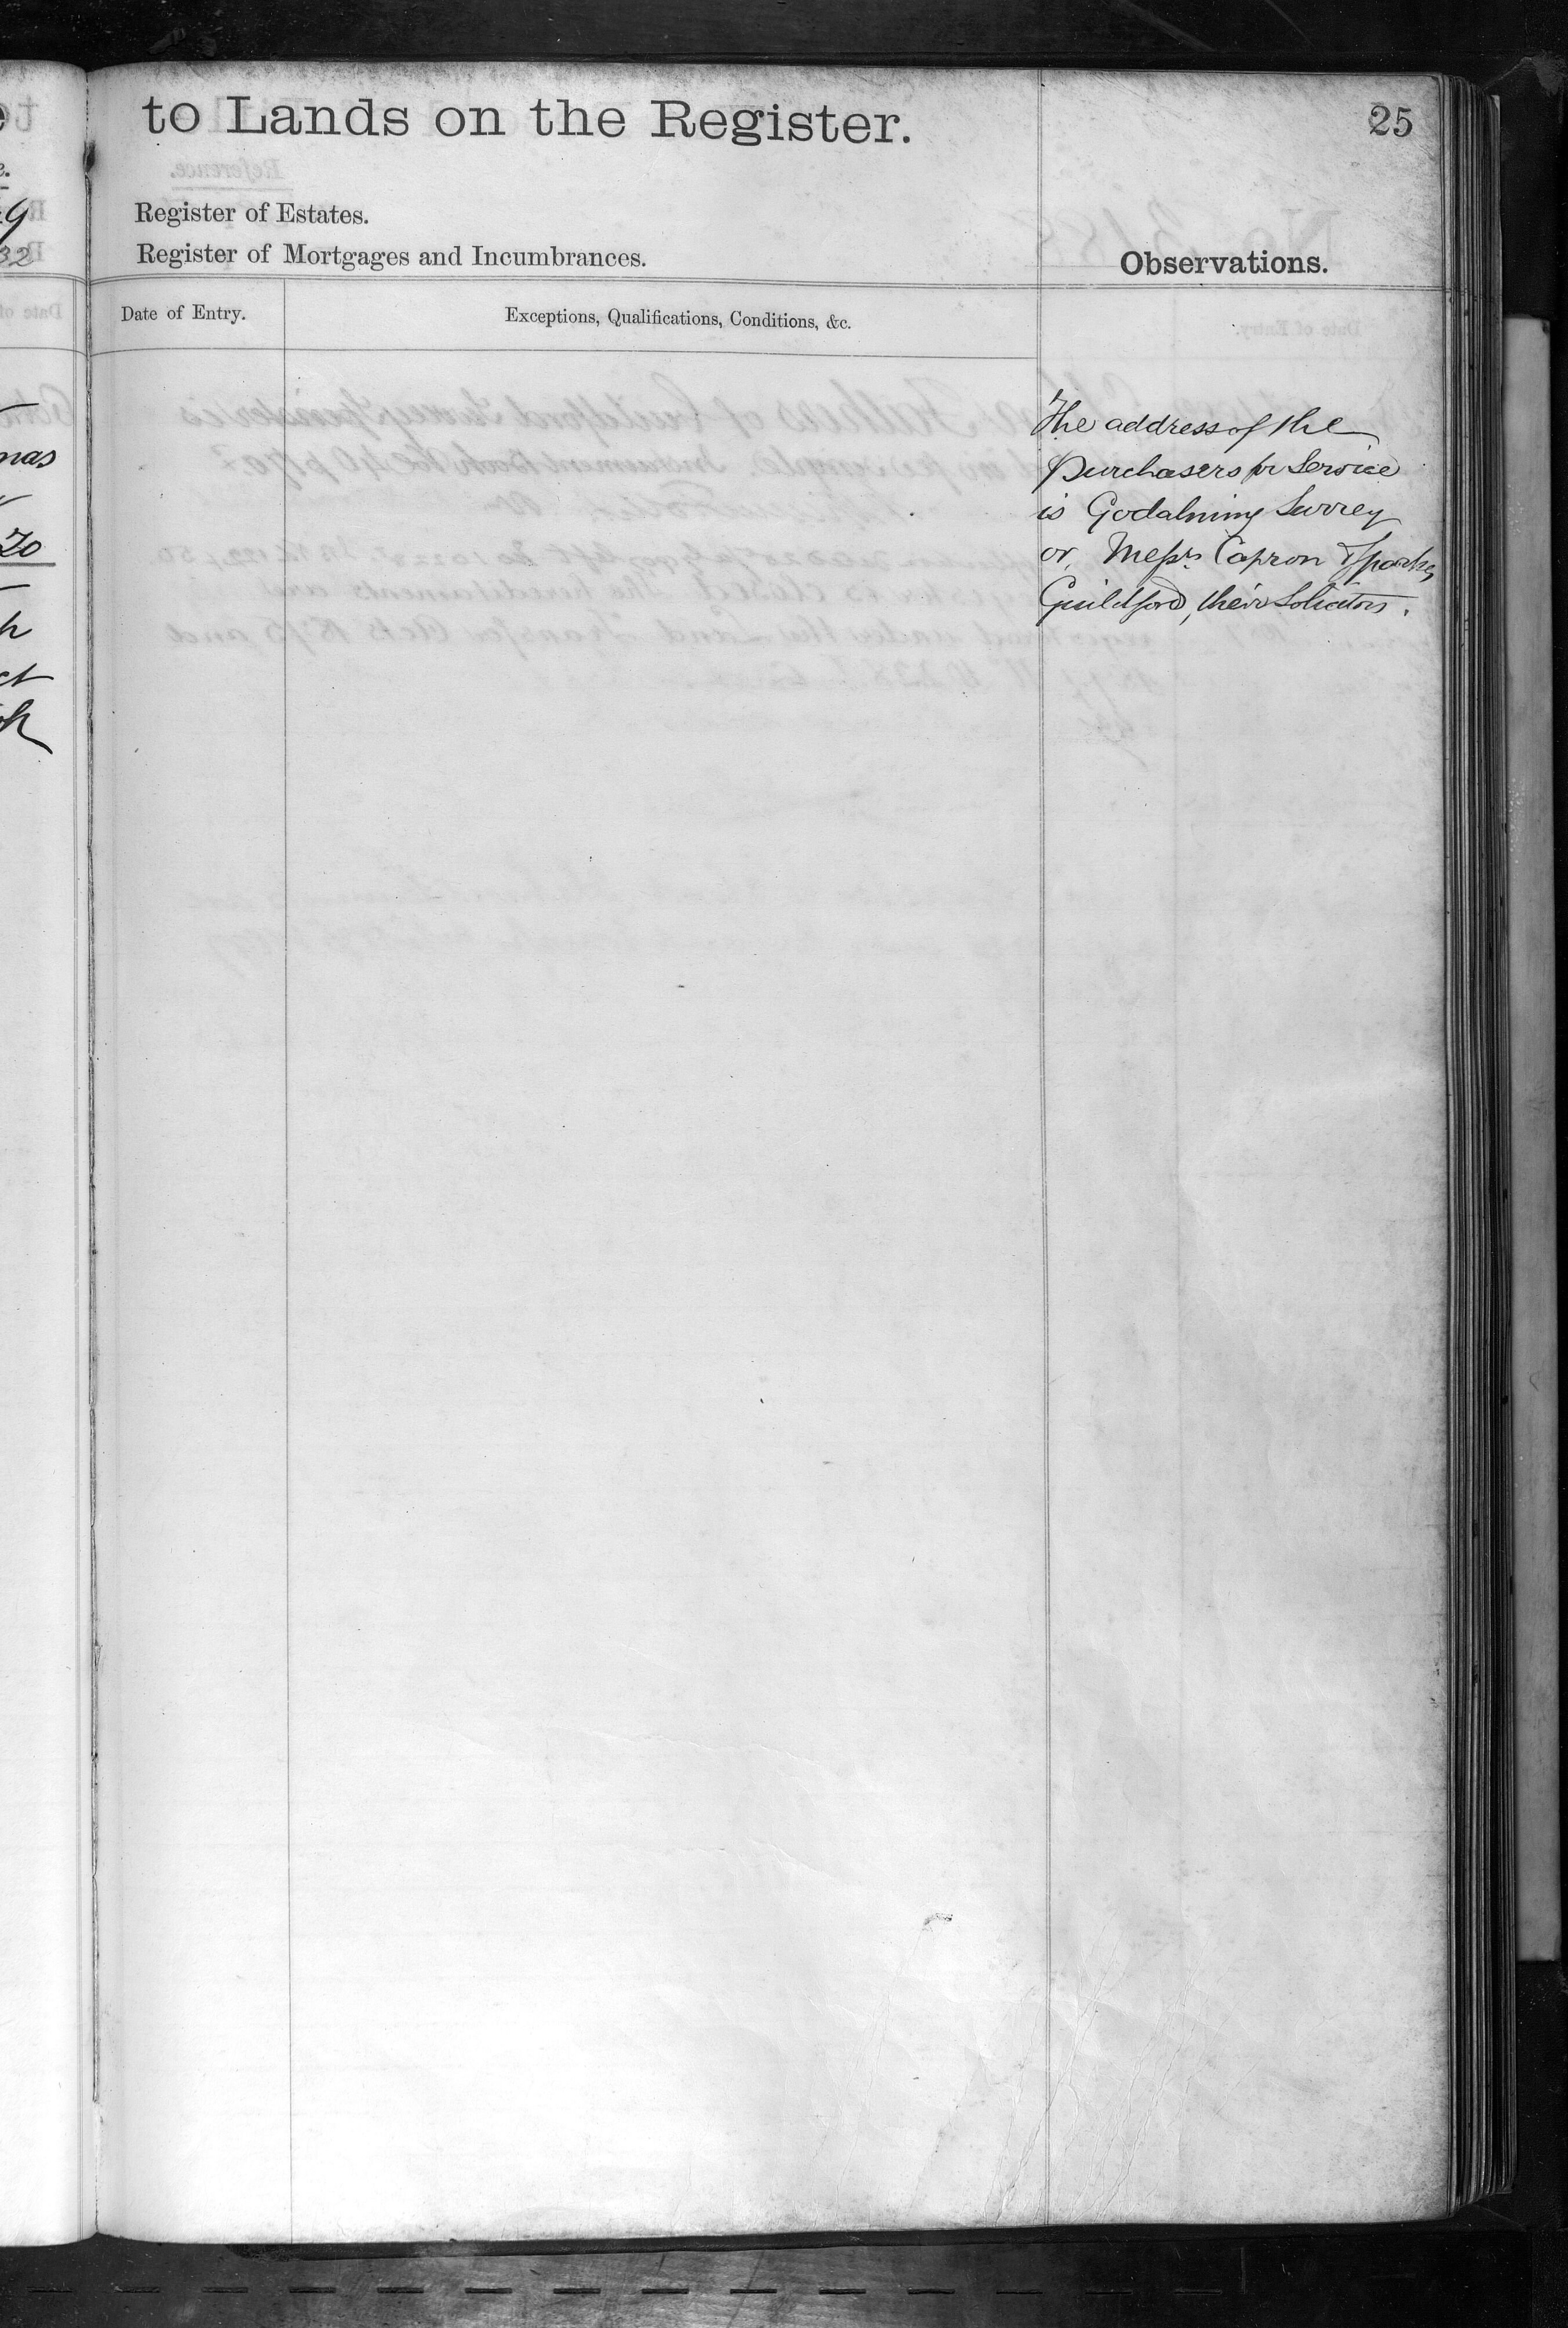 to Lands on the Register.
25
Register of Estates.
Register of Mortgages and Incumbrances.
Observations.
Date of Entry.
Exceptions, Qualifications, Conditions, &c.
The address of the
Purchasers for Service
is Godalming Surrey
or Messrs Capron & Sparkes
Guildford, their Solicitors.
nas
20